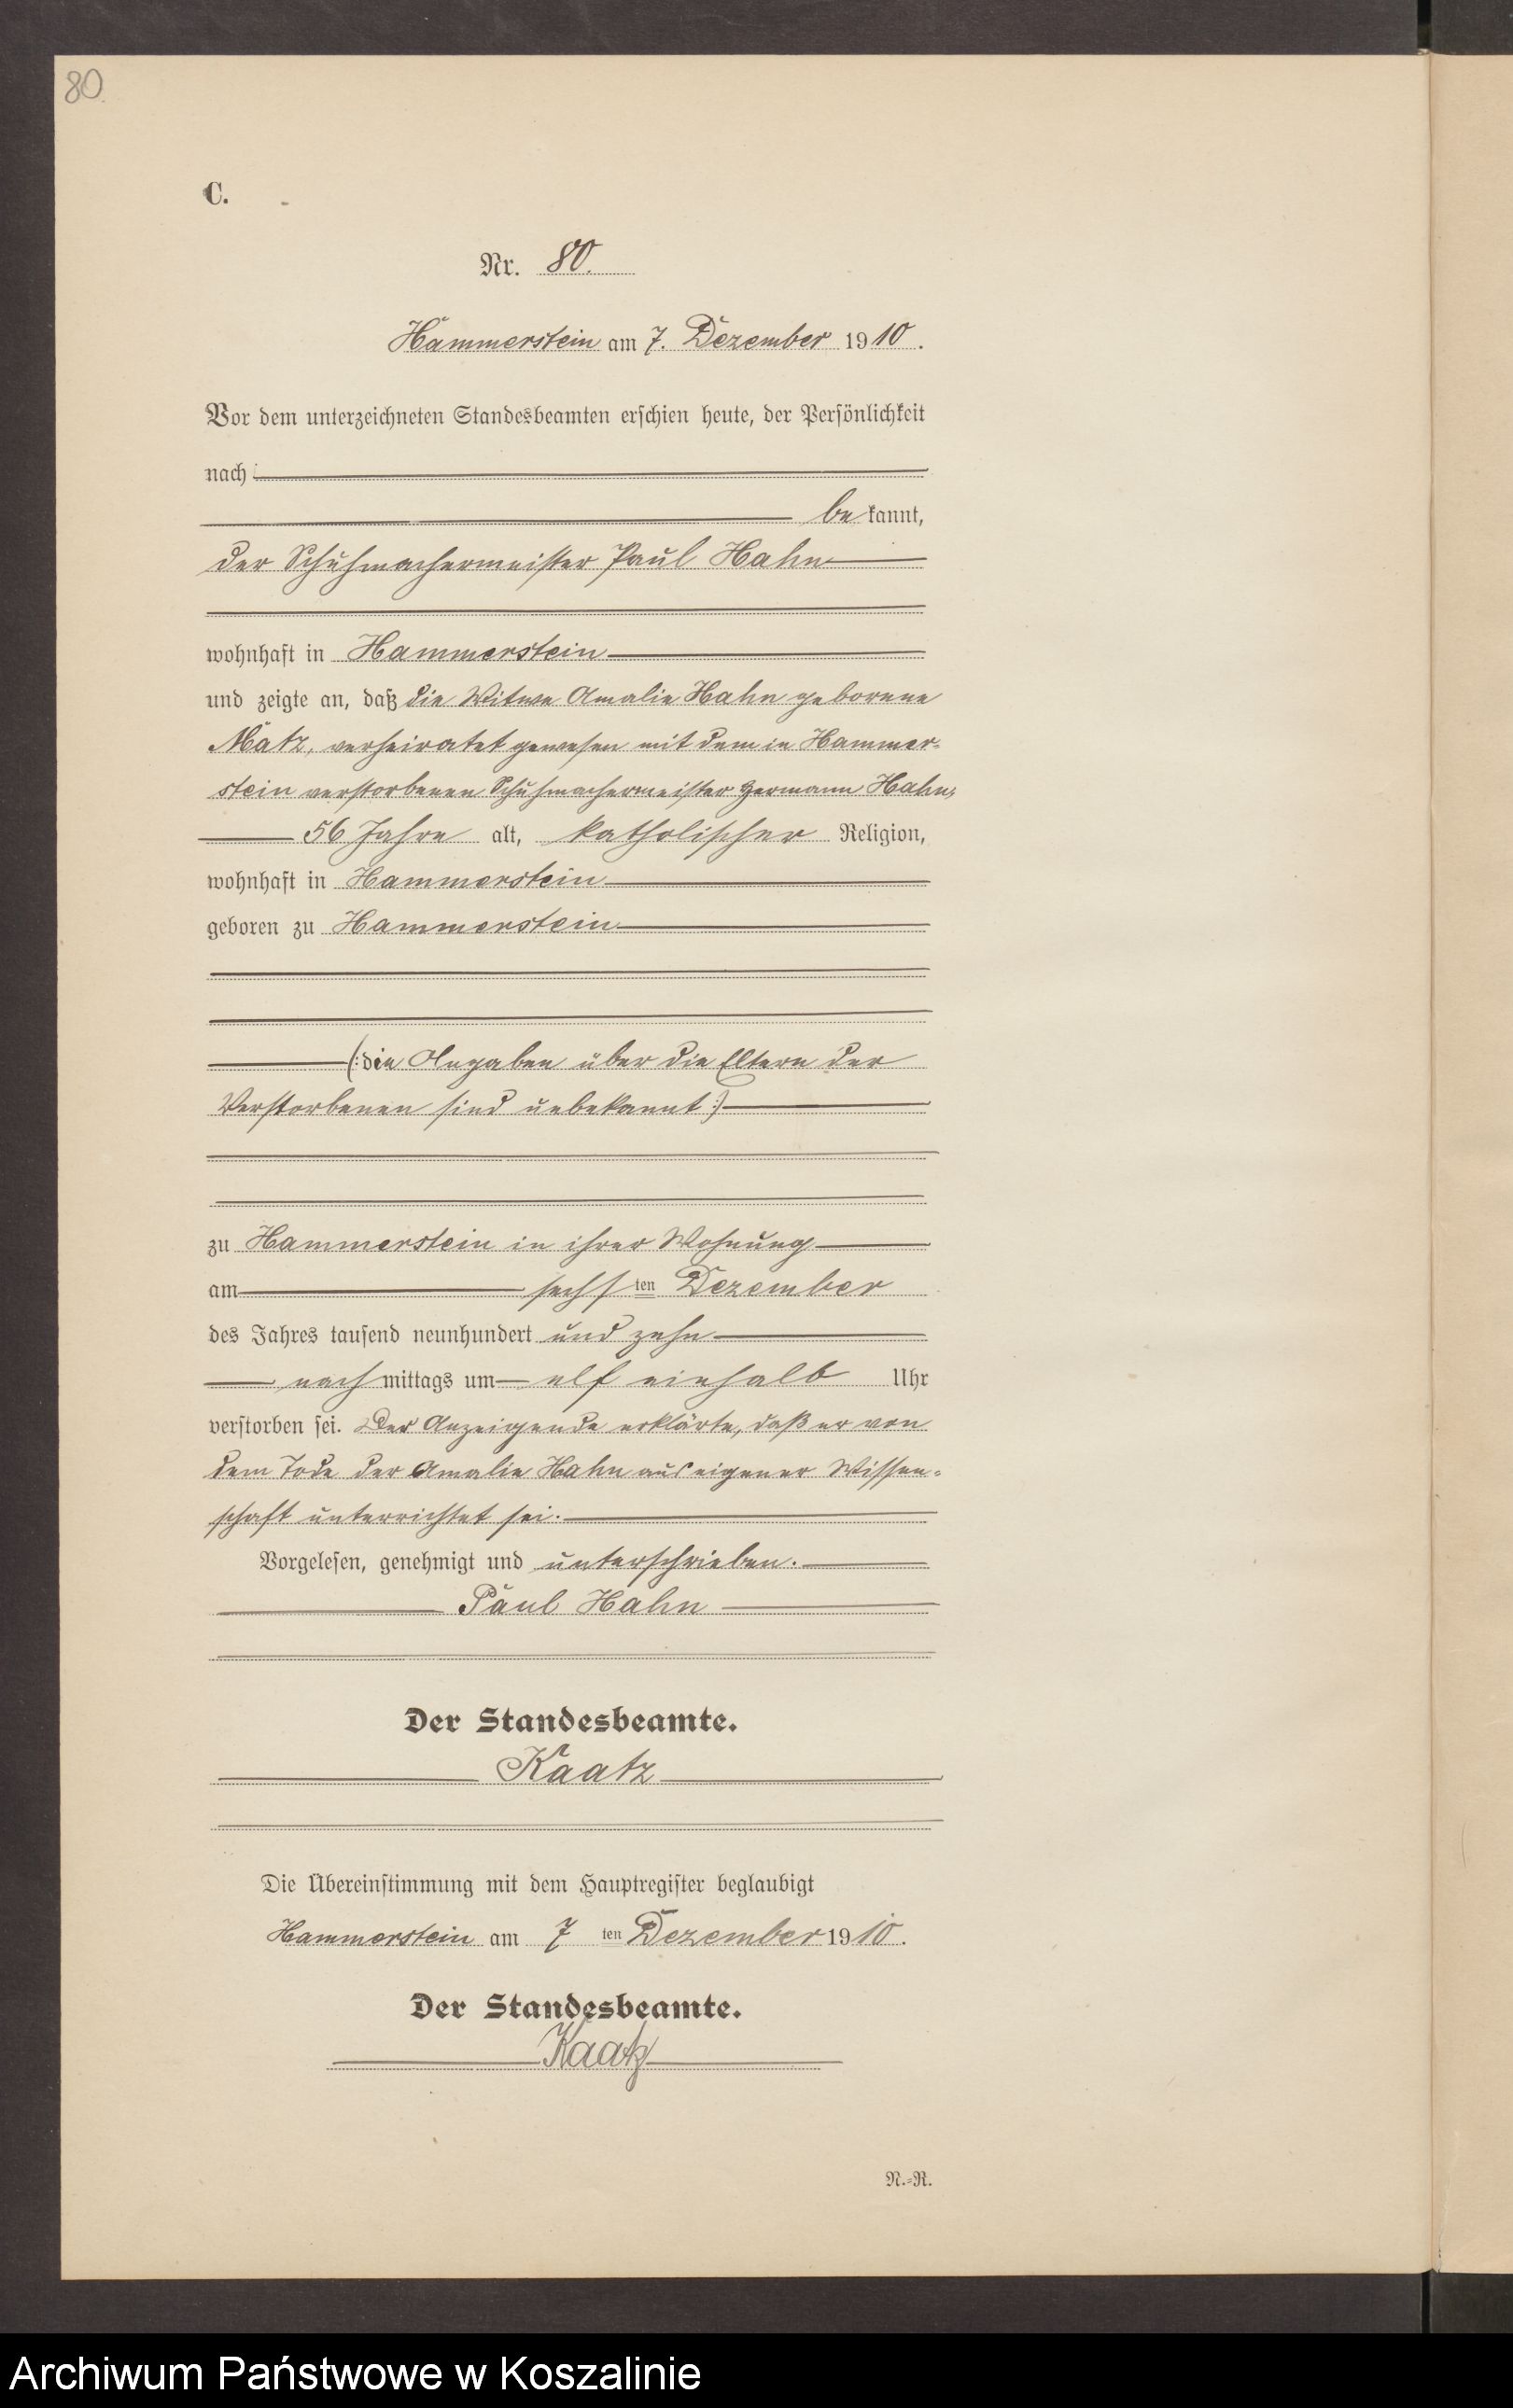 80.
C.
Nr. 80.
Hammerstein am 7. Dezember 1910.
Vor dem unterzeichneten Standesbeamten erschien heute, der Persönlichkeit
nach
bekannt,
der Schuhmachermeister Paul Hahn
wohnhaft in Hammerstein
und zeigte an, daß die Witwe Amalie Hahn geborene
Matz, verheiratet gewesen mit dem in Hammer-
stein verstorbenen Schuhmachermeister Hermann Hahn,
56 Jahre alt, katholischer Religion,
wohnhaft in Hammerstein
geboren zu Hammerstein
(: die Angaben über die Eltern der
Verstorbenen sind unbekannt :)
zu Hammerstein in ihrer Wohnung
am sechsten Dezember
des Jahres tausend neunhundert und zehn
nachmittags um elf einhalb Uhr
verstorben sei. Der Anzeigende erklärte, daß er von
dem Tode der Amalie Hahn aus eigener Wissen-
schaft unterrichtet sei.
Vorgelesen, genehmigt und unterschrieben.
Paul Hahn
Der Standesbeamte.
Kaatz
Die Übereinstimmung mit dem Hauptregister beglaubigt
Hammerstein am 7 ten Dezember 1910.
Der Standesbeamte.
Kaatz
N.-R.
Archiwum Państwowe w Koszalinie